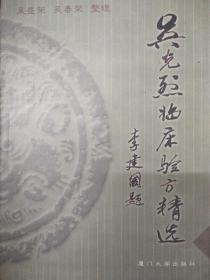 吴盛荣 吴春荣 整理
吴光烈临床验方精选
李建國题
厦门大学出版社